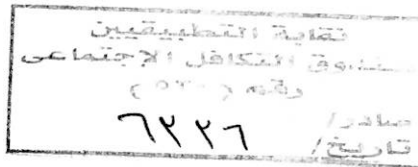 نقابة التطبيقيين
صندوق التكافل الإجتماعى
رقم (
صادر/ ٦٣٣٦
تاريخ/